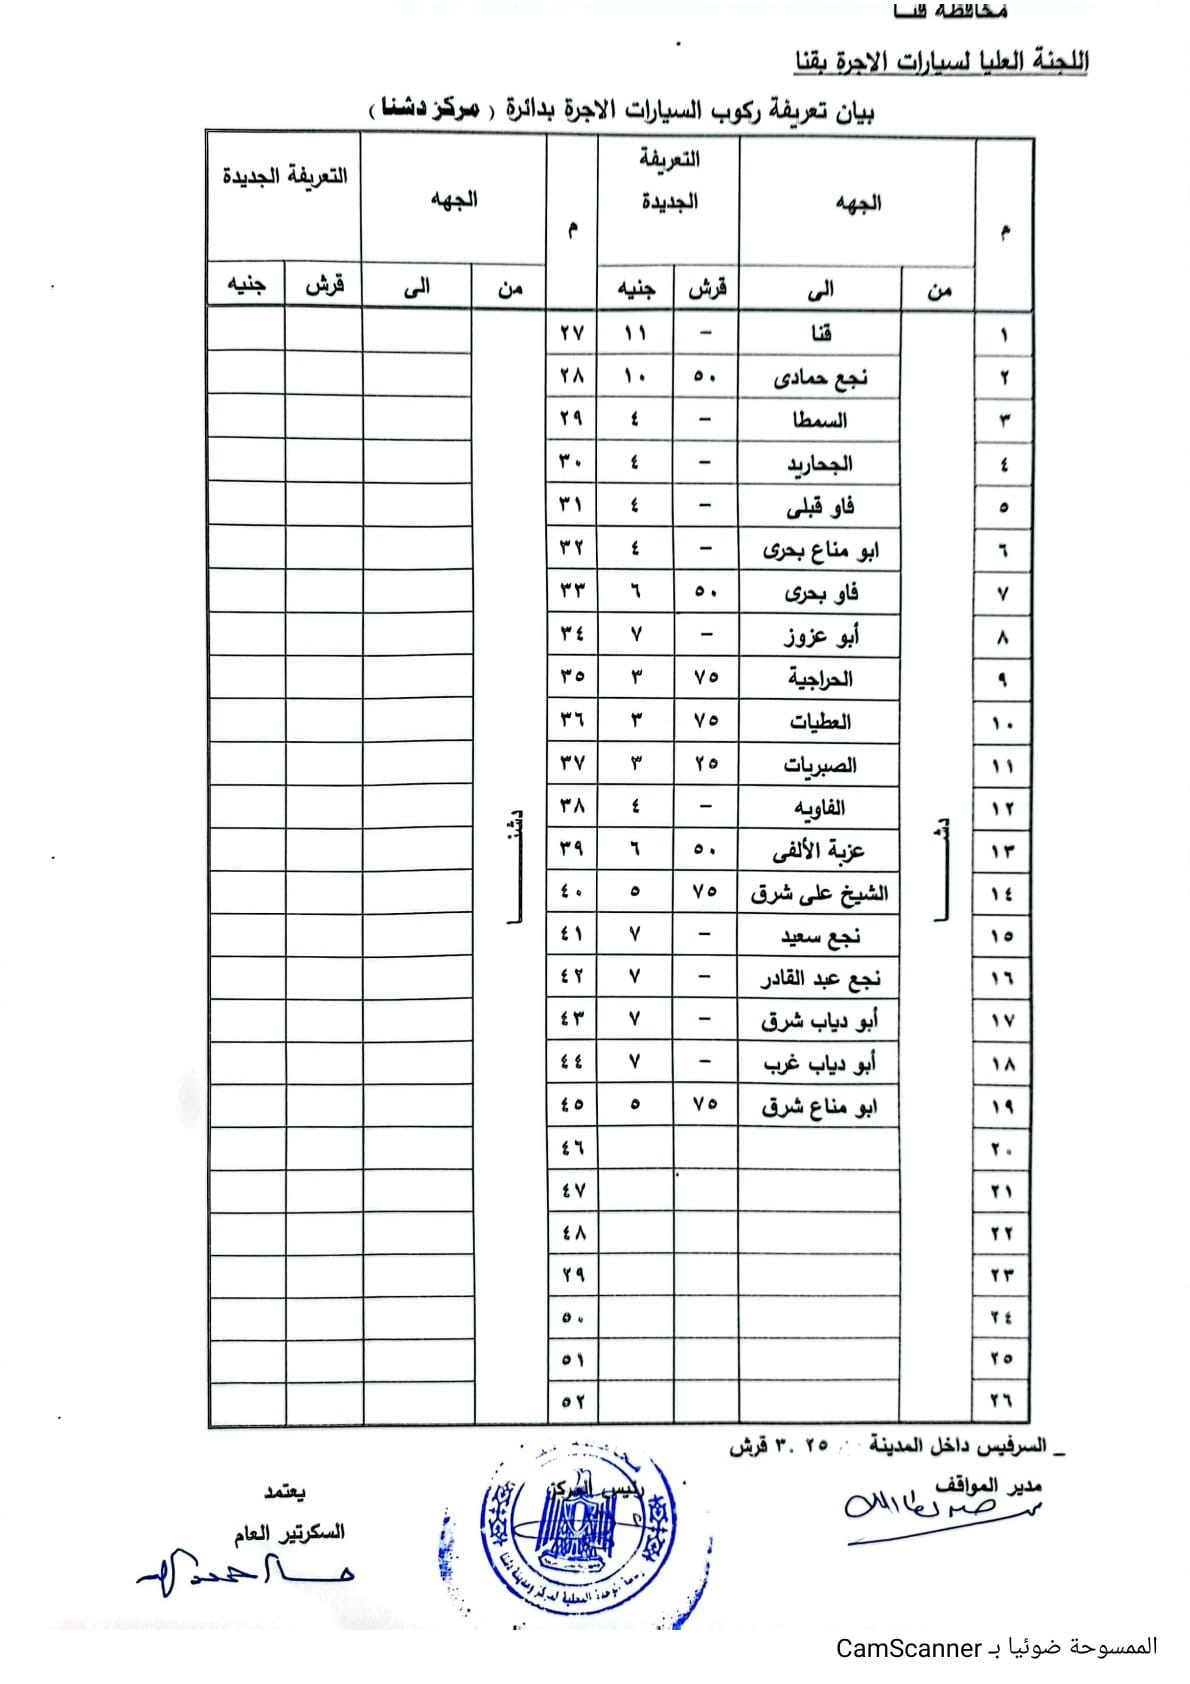 محافظة قنا
اللجنة العليا لسيارات الاجرة بقنا
بيان تعريفة ركوب السيارات الاجرة بدائرة ( مركز دشنا )
م الجهه التعريفة الجديدة م الجهه التعريفة الجديدة
من الى قرش جنيه من الى قرش جنيه
١ قنا – ١١ ٢٧
٢ نجع حمادى ٥٠ ١٠ ٢٨
٣ السمطا – ٤ ٢٩
٤ الجحاريد – ٤ ٣٠
٥ فاو قبلى – ٤ ٣١
٦ ابو مناع بحرى – ٤ ٣٢
٧ فاو بحرى ٥٠ ٦ ٣٣
٨ أبو عزوز – ٧ ٣٤
٩ الحراجية ٧٥ ٣ ٣٥
١٠ العطيات ٧٥ ٣ ٣٦
١١ الصبريات ٢٥ ٣ ٣٧
١٢ الفاويه – ٤ ٣٨
دشنـــــا
١٣ عزبة الألفى ٥٠ ٦ ٣٩
١٤ الشيخ على شرق ٧٥ ٥ ٤٠
١٥ نجع سعيد – ٧ ٤١
١٦ نجع عبد القادر – ٧ ٤٢
١٧ أبو دياب شرق – ٧ ٤٣
١٨ أبو دياب غرب – ٧ ٤٤
١٩ ابو مناع شرق ٧٥ ٥ ٤٥
٢٠ ٤٦
٢١ ٤٧
٢٢ ٤٨
٢٣ ٢٩
٢٤ ٥٠
٢٥ ٥١
٢٦ ٥٢
_ السرفيس داخل المدينة ٣.٢٥ قرش
مدير المواقف رئيس المركز يعتمد
السكرتير العام
الممسوحة ضوئيا بـ CamScanner